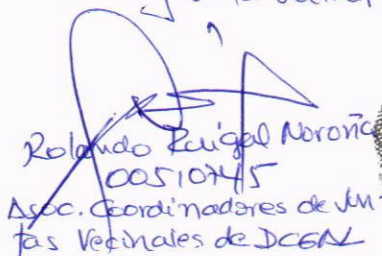 Rolando Raigal Noroña
00510745
Asoc. Coordinadores de Jun-
tas Vecinales de DCGAL